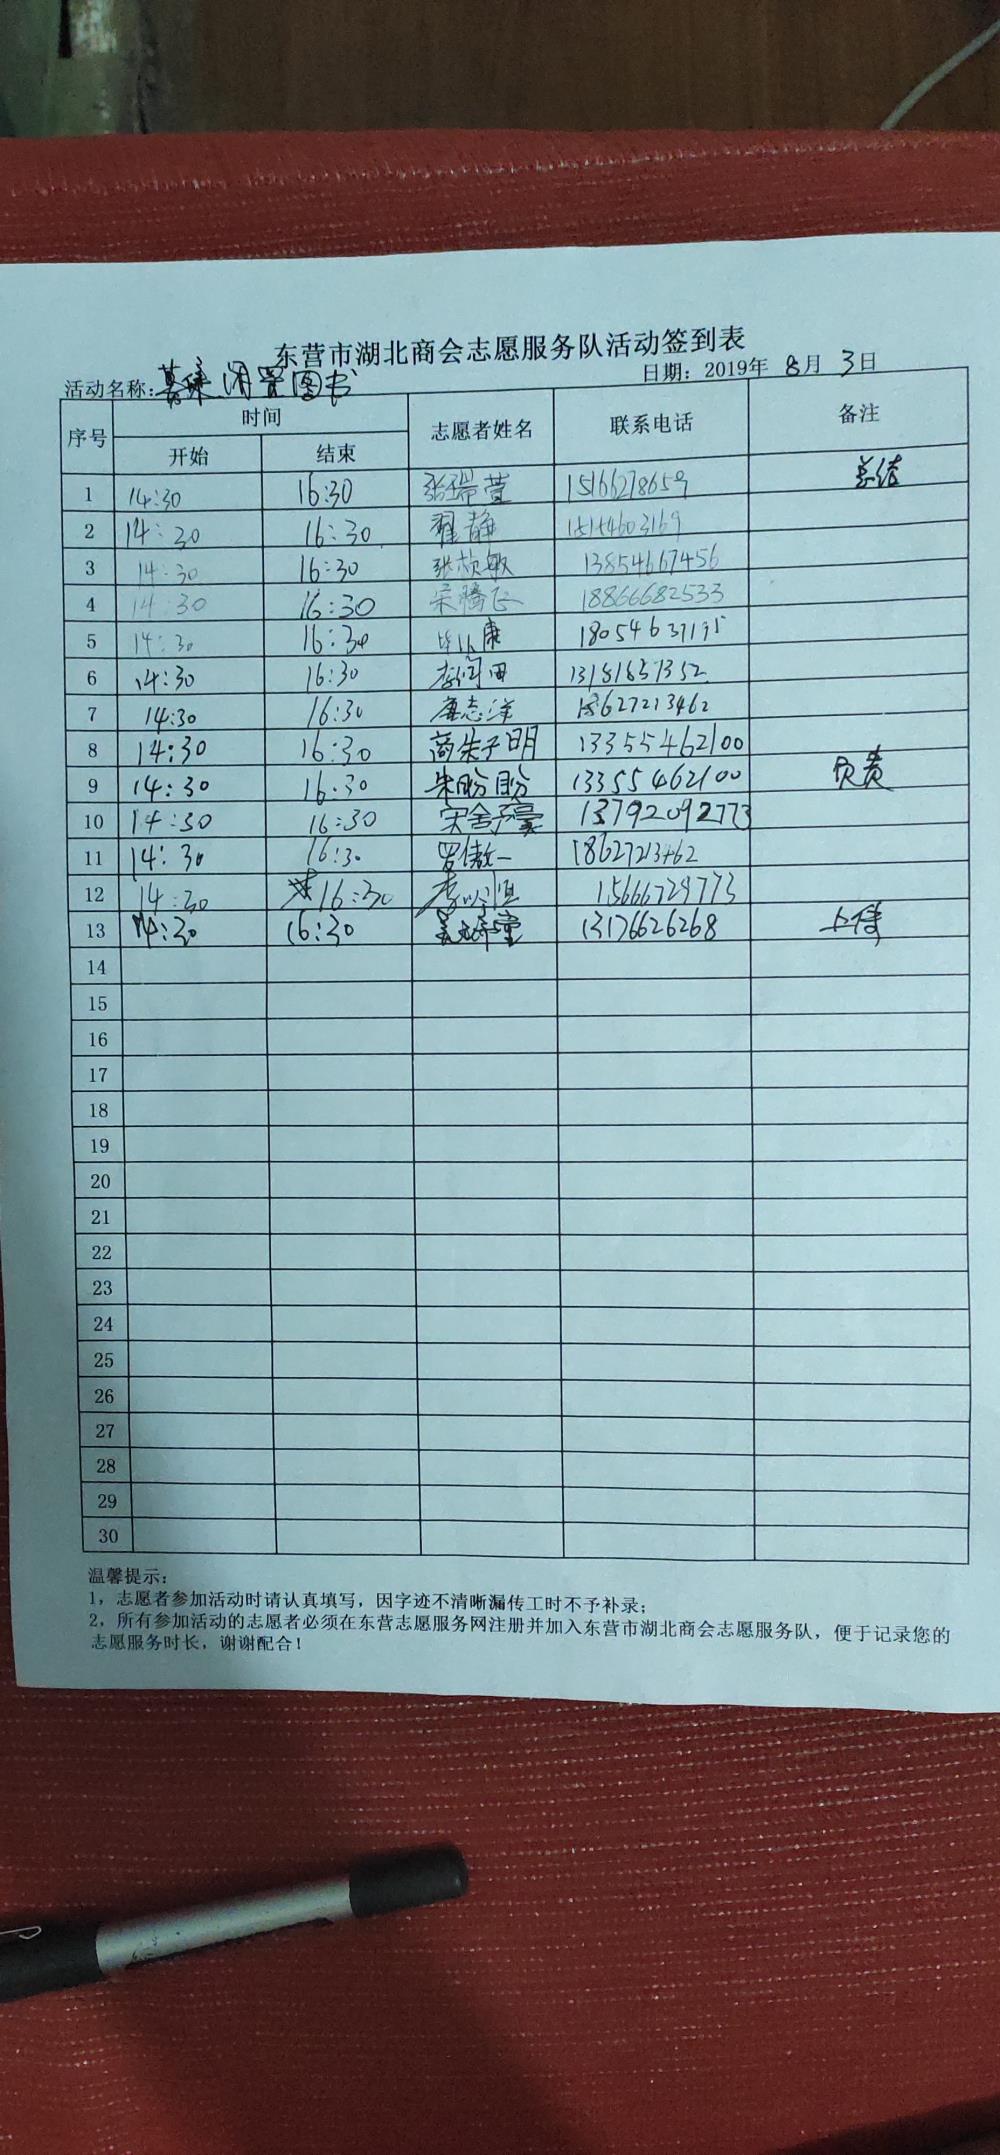 东营市湖北商会志愿服务队活动签到表
活动名称：募集闲置图书 日期：2019年 8月 3日
序号 时间 志愿者姓名 联系电话 备注
开始 结束
1 14:30 16:30 张瑞萱 15166278659 总结
2 14:30 16:30 翟静 15154603169
3 14:30 16:30 张桢敏 13854667456
4 14:30 16:30 宋腾飞 18866682533
5 14:30 16:30 18054637195
6 14:30 16:30 李润田 13181857352
7 14:30 16:30 唐志洋 18627213462
8 14:30 16:30 商朱子明 13355462100
9 14:30 16:30 朱盼盼 13355462100 负责
10 14:30 16:30 宋舍予豪 13792092773
11 14:30 16:30 罗傲一 18627213462
12 14:30 16:30 15666729773
13 14:30 16:30 13176626268 上传
14
15
16
17
18
19
20
21
22
23
24
25
26
27
28
29
30
温馨提示：
1，志愿者参加活动时请认真填写，因字迹不清晰漏传工时不予补录；
2，所有参加活动的志愿者必须在东营志愿服务网注册并加入东营市湖北商会志愿服务队，便于记录您的
志愿服务时长，谢谢配合！